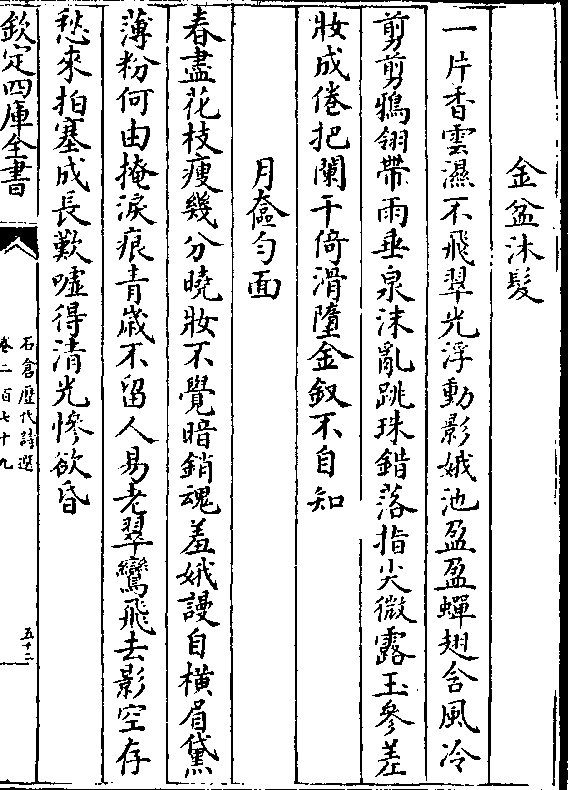 金盆沐髮
一片香雲濕不飛翠光浮動影娥池盈盈蟬翅含風冷
剪剪鴉翎帶雨垂泉沫亂跳珠錯落指尖微露玉參差
妝成倦把闌干倚滑墮金釵不自知
月奩勻面
春盡花枝瘦幾分曉妝不覺暗銷魂羞娥謾自橫眉黛
薄粉何由掩淚痕青歲不留人易老翠鸞飛去影空存
愁來拍塞成長歎噓得清光慘欲昏
欽定四庫全書
石倉歷代詩選
卷二百七十九
五十二